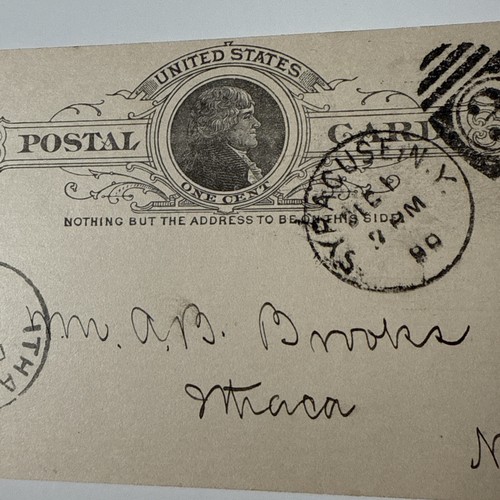 UNITED STATES
POSTAL CARD
ONE CENT
NOTHING BUT THE ADDRESS TO BE ON THIS SIDE.
SYRACUSE, N.Y.
PM
ITHA
A. B. Brooks
Ithaca
N